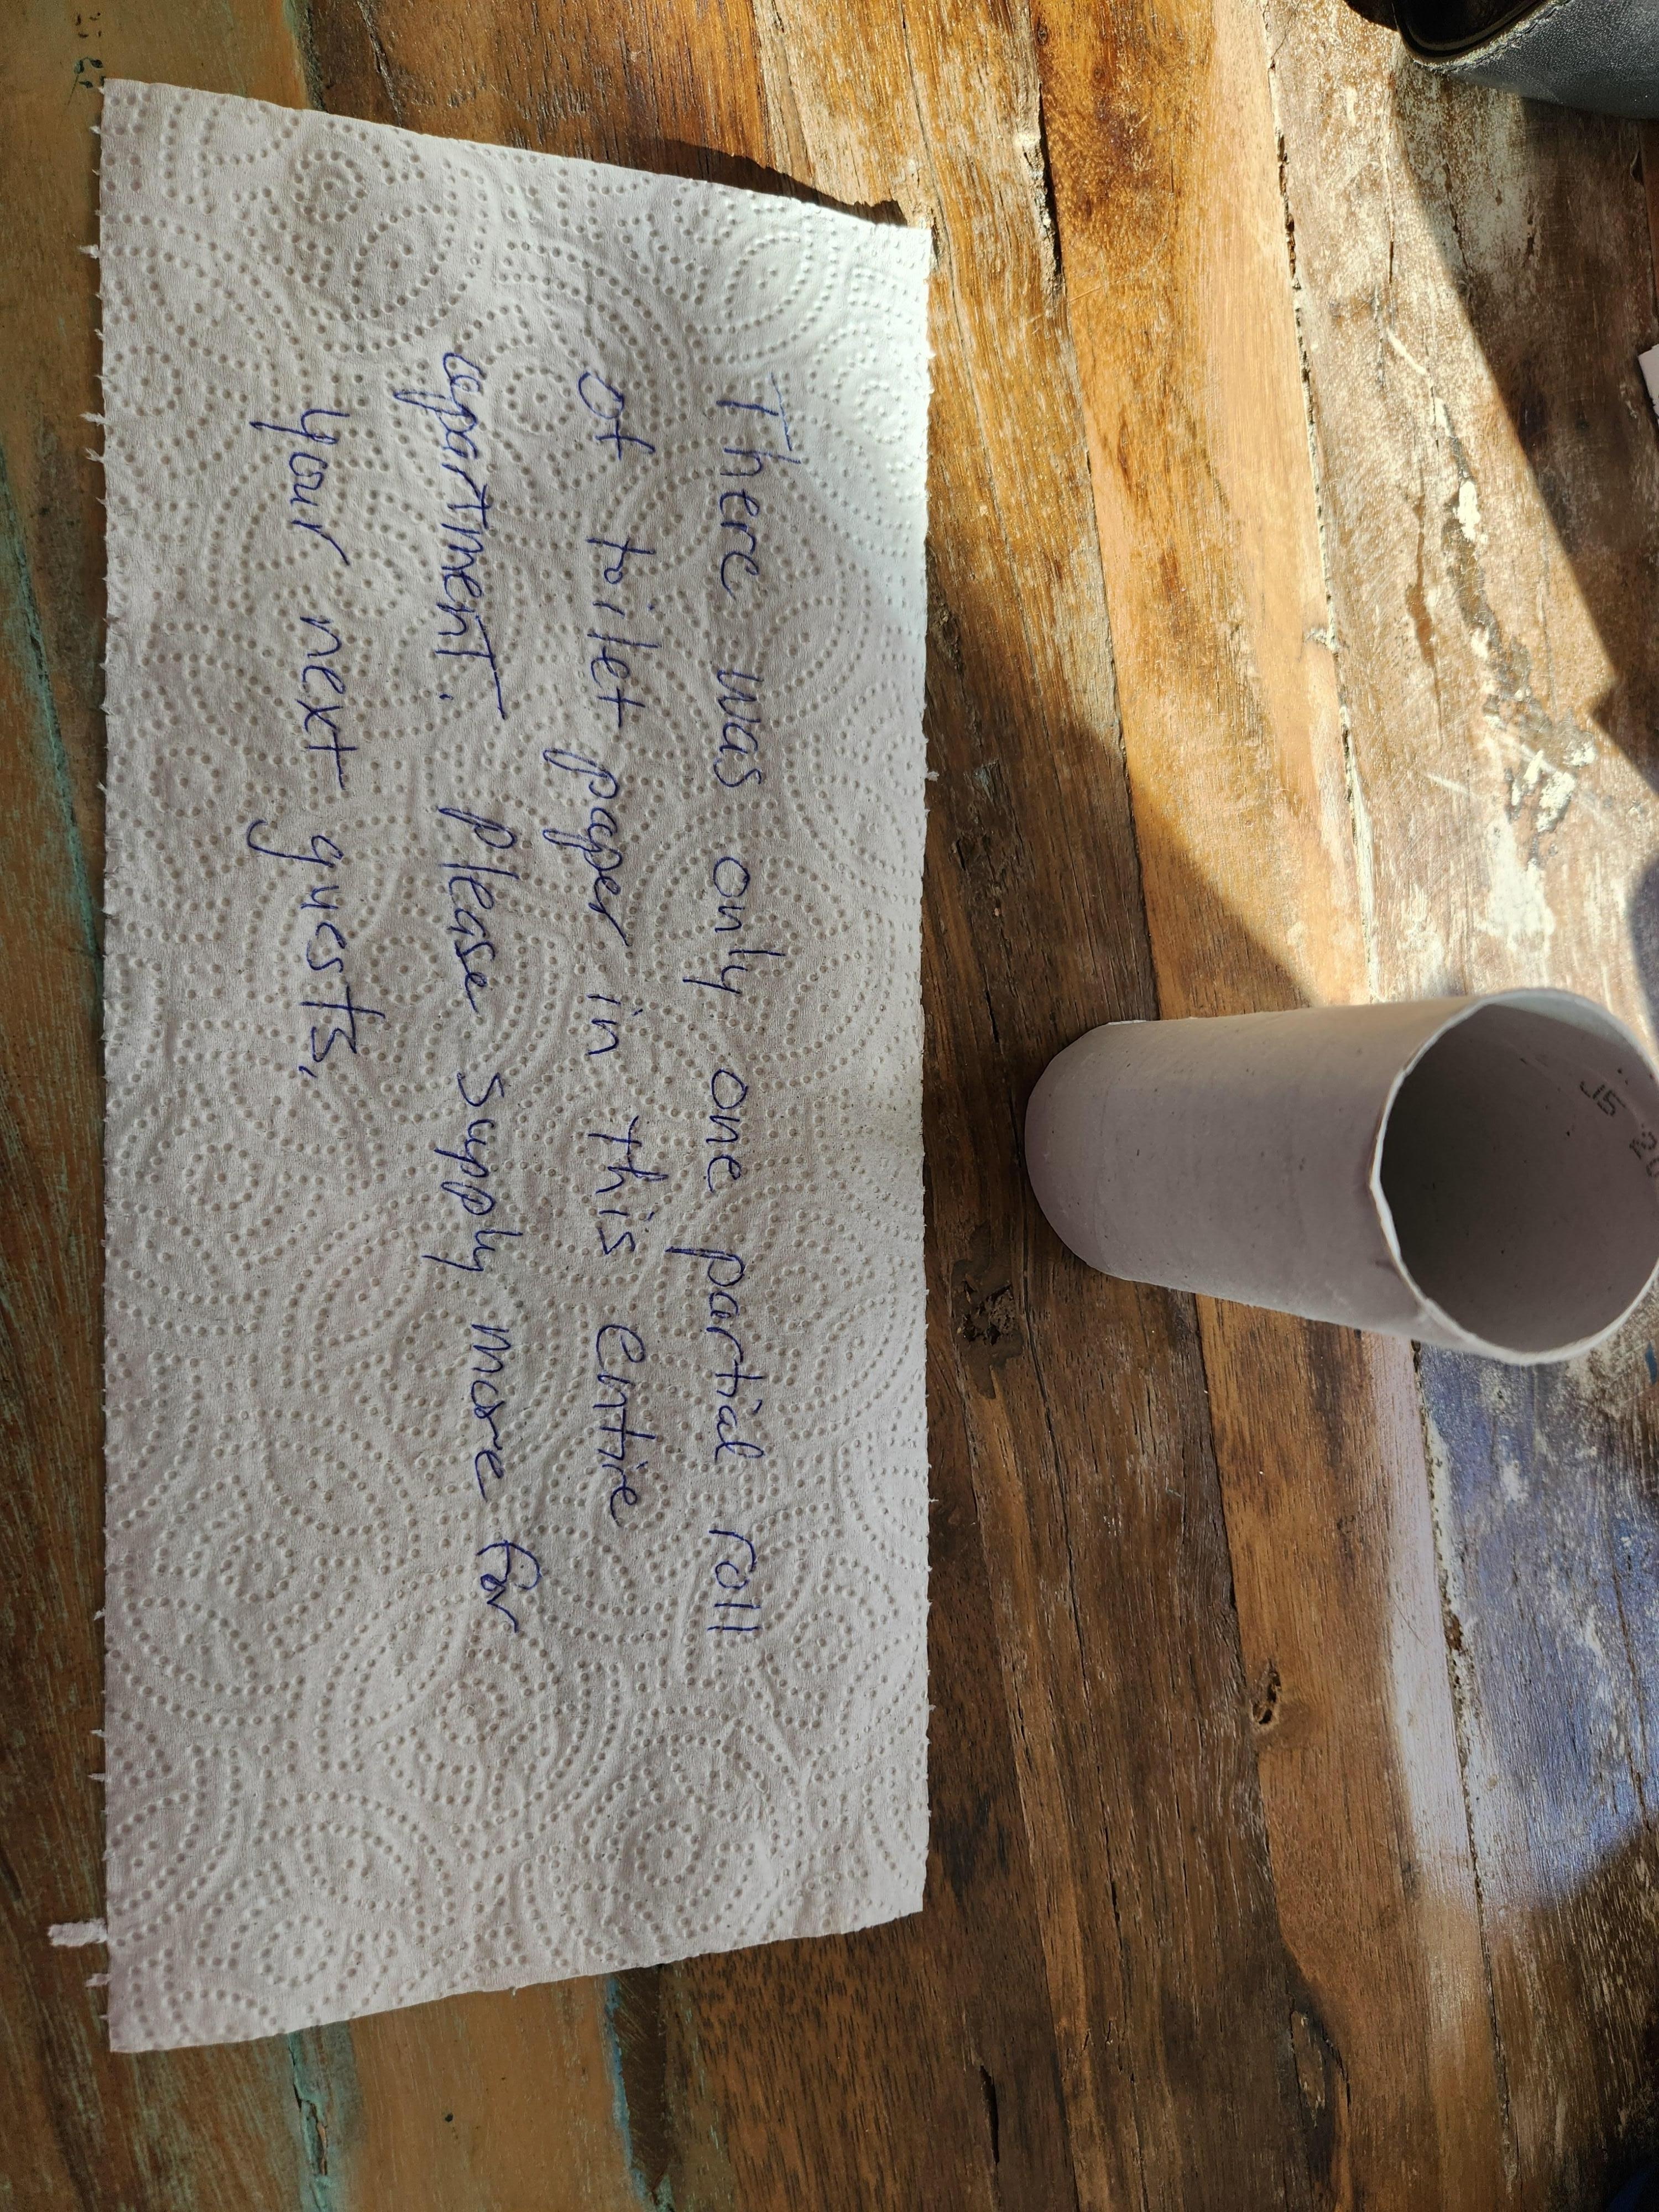 There was only one partial roll
of toilet paper in this entire
apartment. Please supply more for
your next guests.